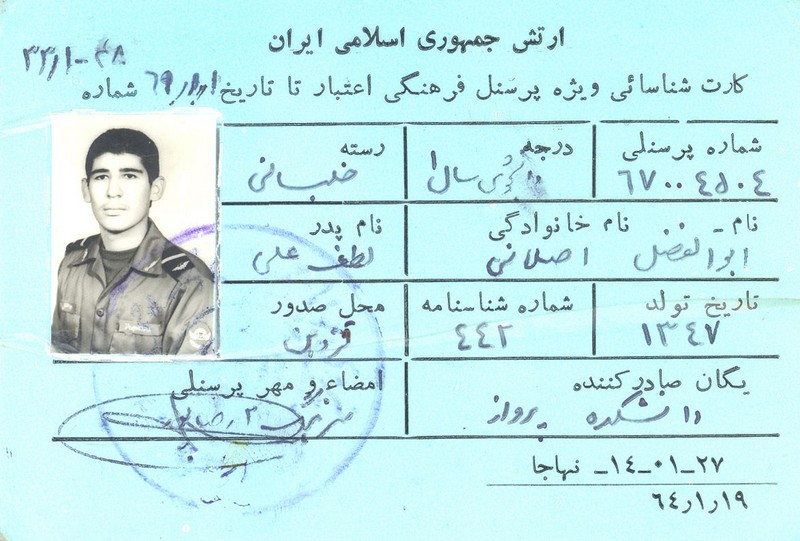 ارتش جمهوری اسلامی ایران
کارت شناسائی ویژه پرسنل فرهنگی اعتبار تا تاریخ شماره
شماره پرسنلی درجه رسته
۶۷۰۰۴۵۰۴ دانشجوی سال ۱ خلبانی
نام - نام خانوادگی نام پدر
ابوالفضل اصلانی لطف علی
تاریخ تولد شماره شناسنامه محل صدور
۱۳۴۷ ۴۴۲ قزوین
یگان صادر کننده امضاء و مهر پرسنلی
دانشکده پرواز
۲۷-۰۱-۱۴- نهاجا
۶۴/۱/۱۹